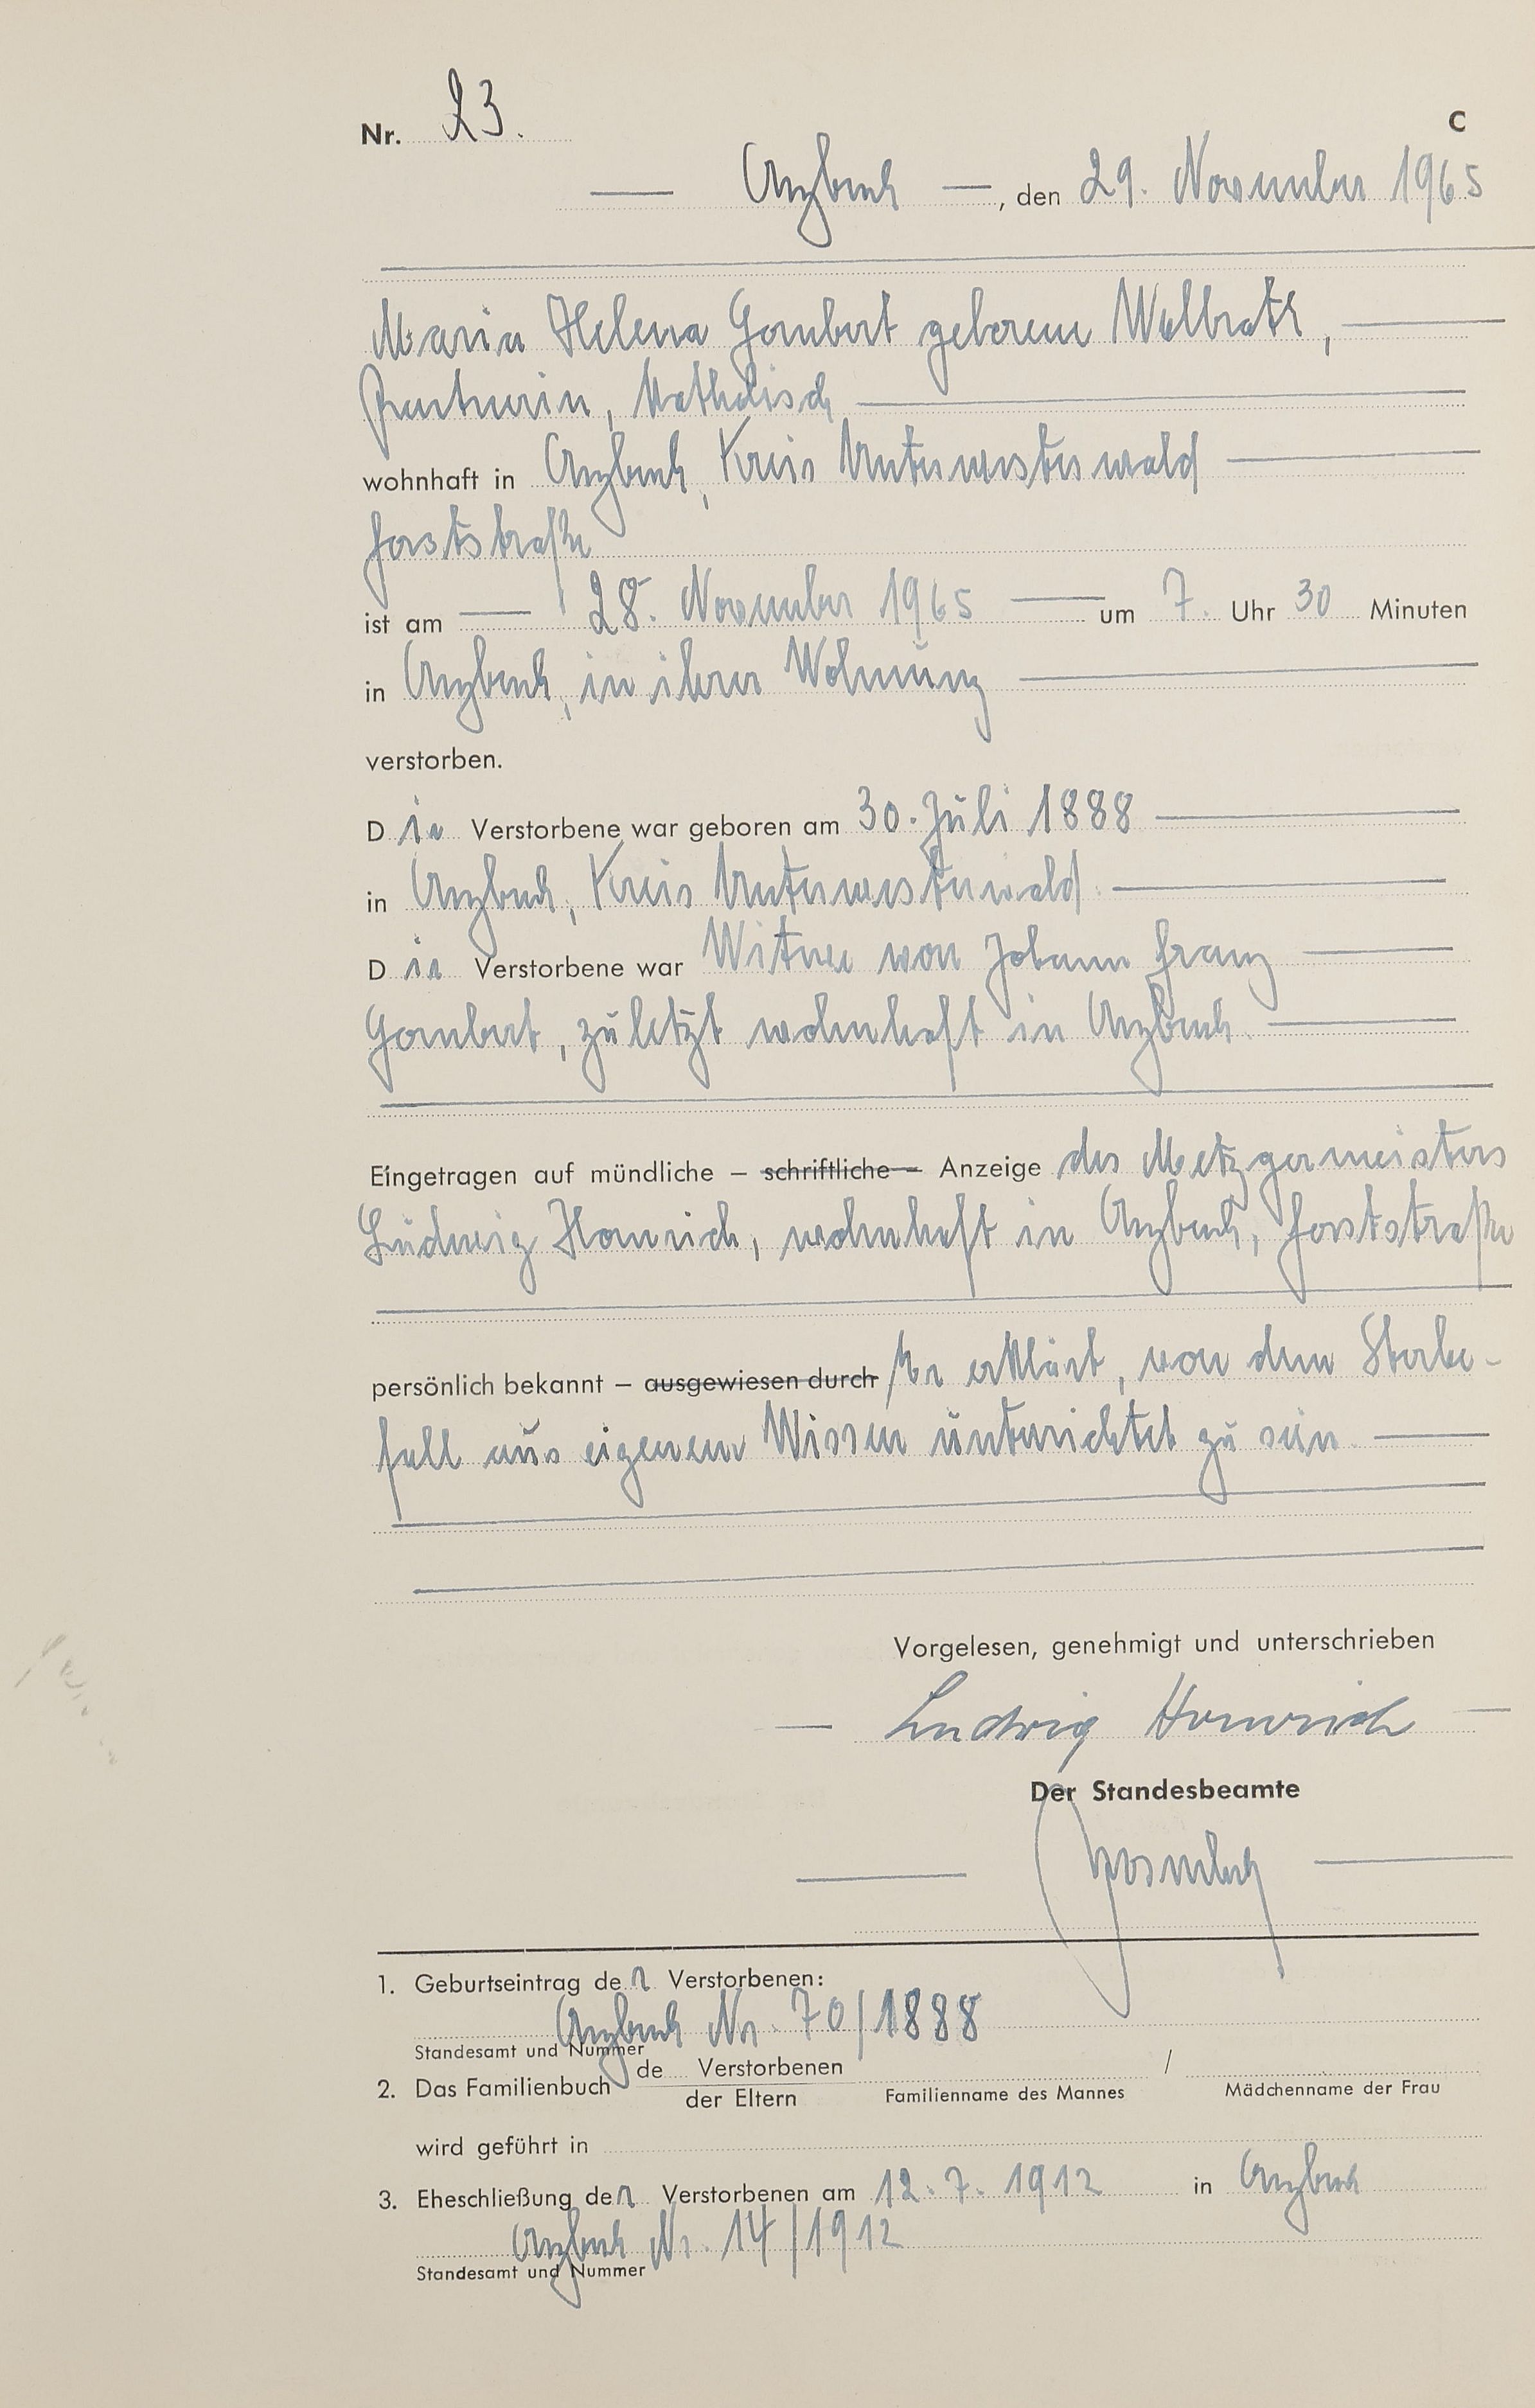 Nr. 23.
C
Arzbach, den 29. November 1965
Maria Helena Gombert geborene Wollrath,
Rentnerin, Katholisch
wohnhaft in Arzbach, Kreis Unterwesterwald
Forststraße
ist am 28. November 1965 um 7. Uhr 30 Minuten
in Arzbach, in ihrer Wohnung
verstorben.
Die Verstorbene war geboren am 30. Juli 1888
in Arzbach, Kreis Unterwesterwald.
Die Verstorbene war Witwe von Johann Franz
Gombert, zuletzt wohnhaft in Arzbach.
Eingetragen auf mündliche – schriftliche – Anzeige des Metzgermeisters
Ludwig Homrich, wohnhaft in Arzbach, Forststraße
persönlich bekannt – ausgewiesen durch Er erklärt, von dem Sterbe-
fall aus eigenem Wissen unterrichtet zu sein
Vorgelesen, genehmigt und unterschrieben
Ludwig Homrich
Der Standesbeamte
1. Geburtseintrag der Verstorbenen:
Arzbach Nr. 70/1888
Standesamt und Nummer
2. Das Familienbuch de Verstorbenen /
der Eltern Familienname des Mannes Mädchenname der Frau
wird geführt in
3. Eheschließung der Verstorbenen am 12. 7. 1912 in Arzbach
Arzbach Nr. 14/1912
Standesamt und Nummer